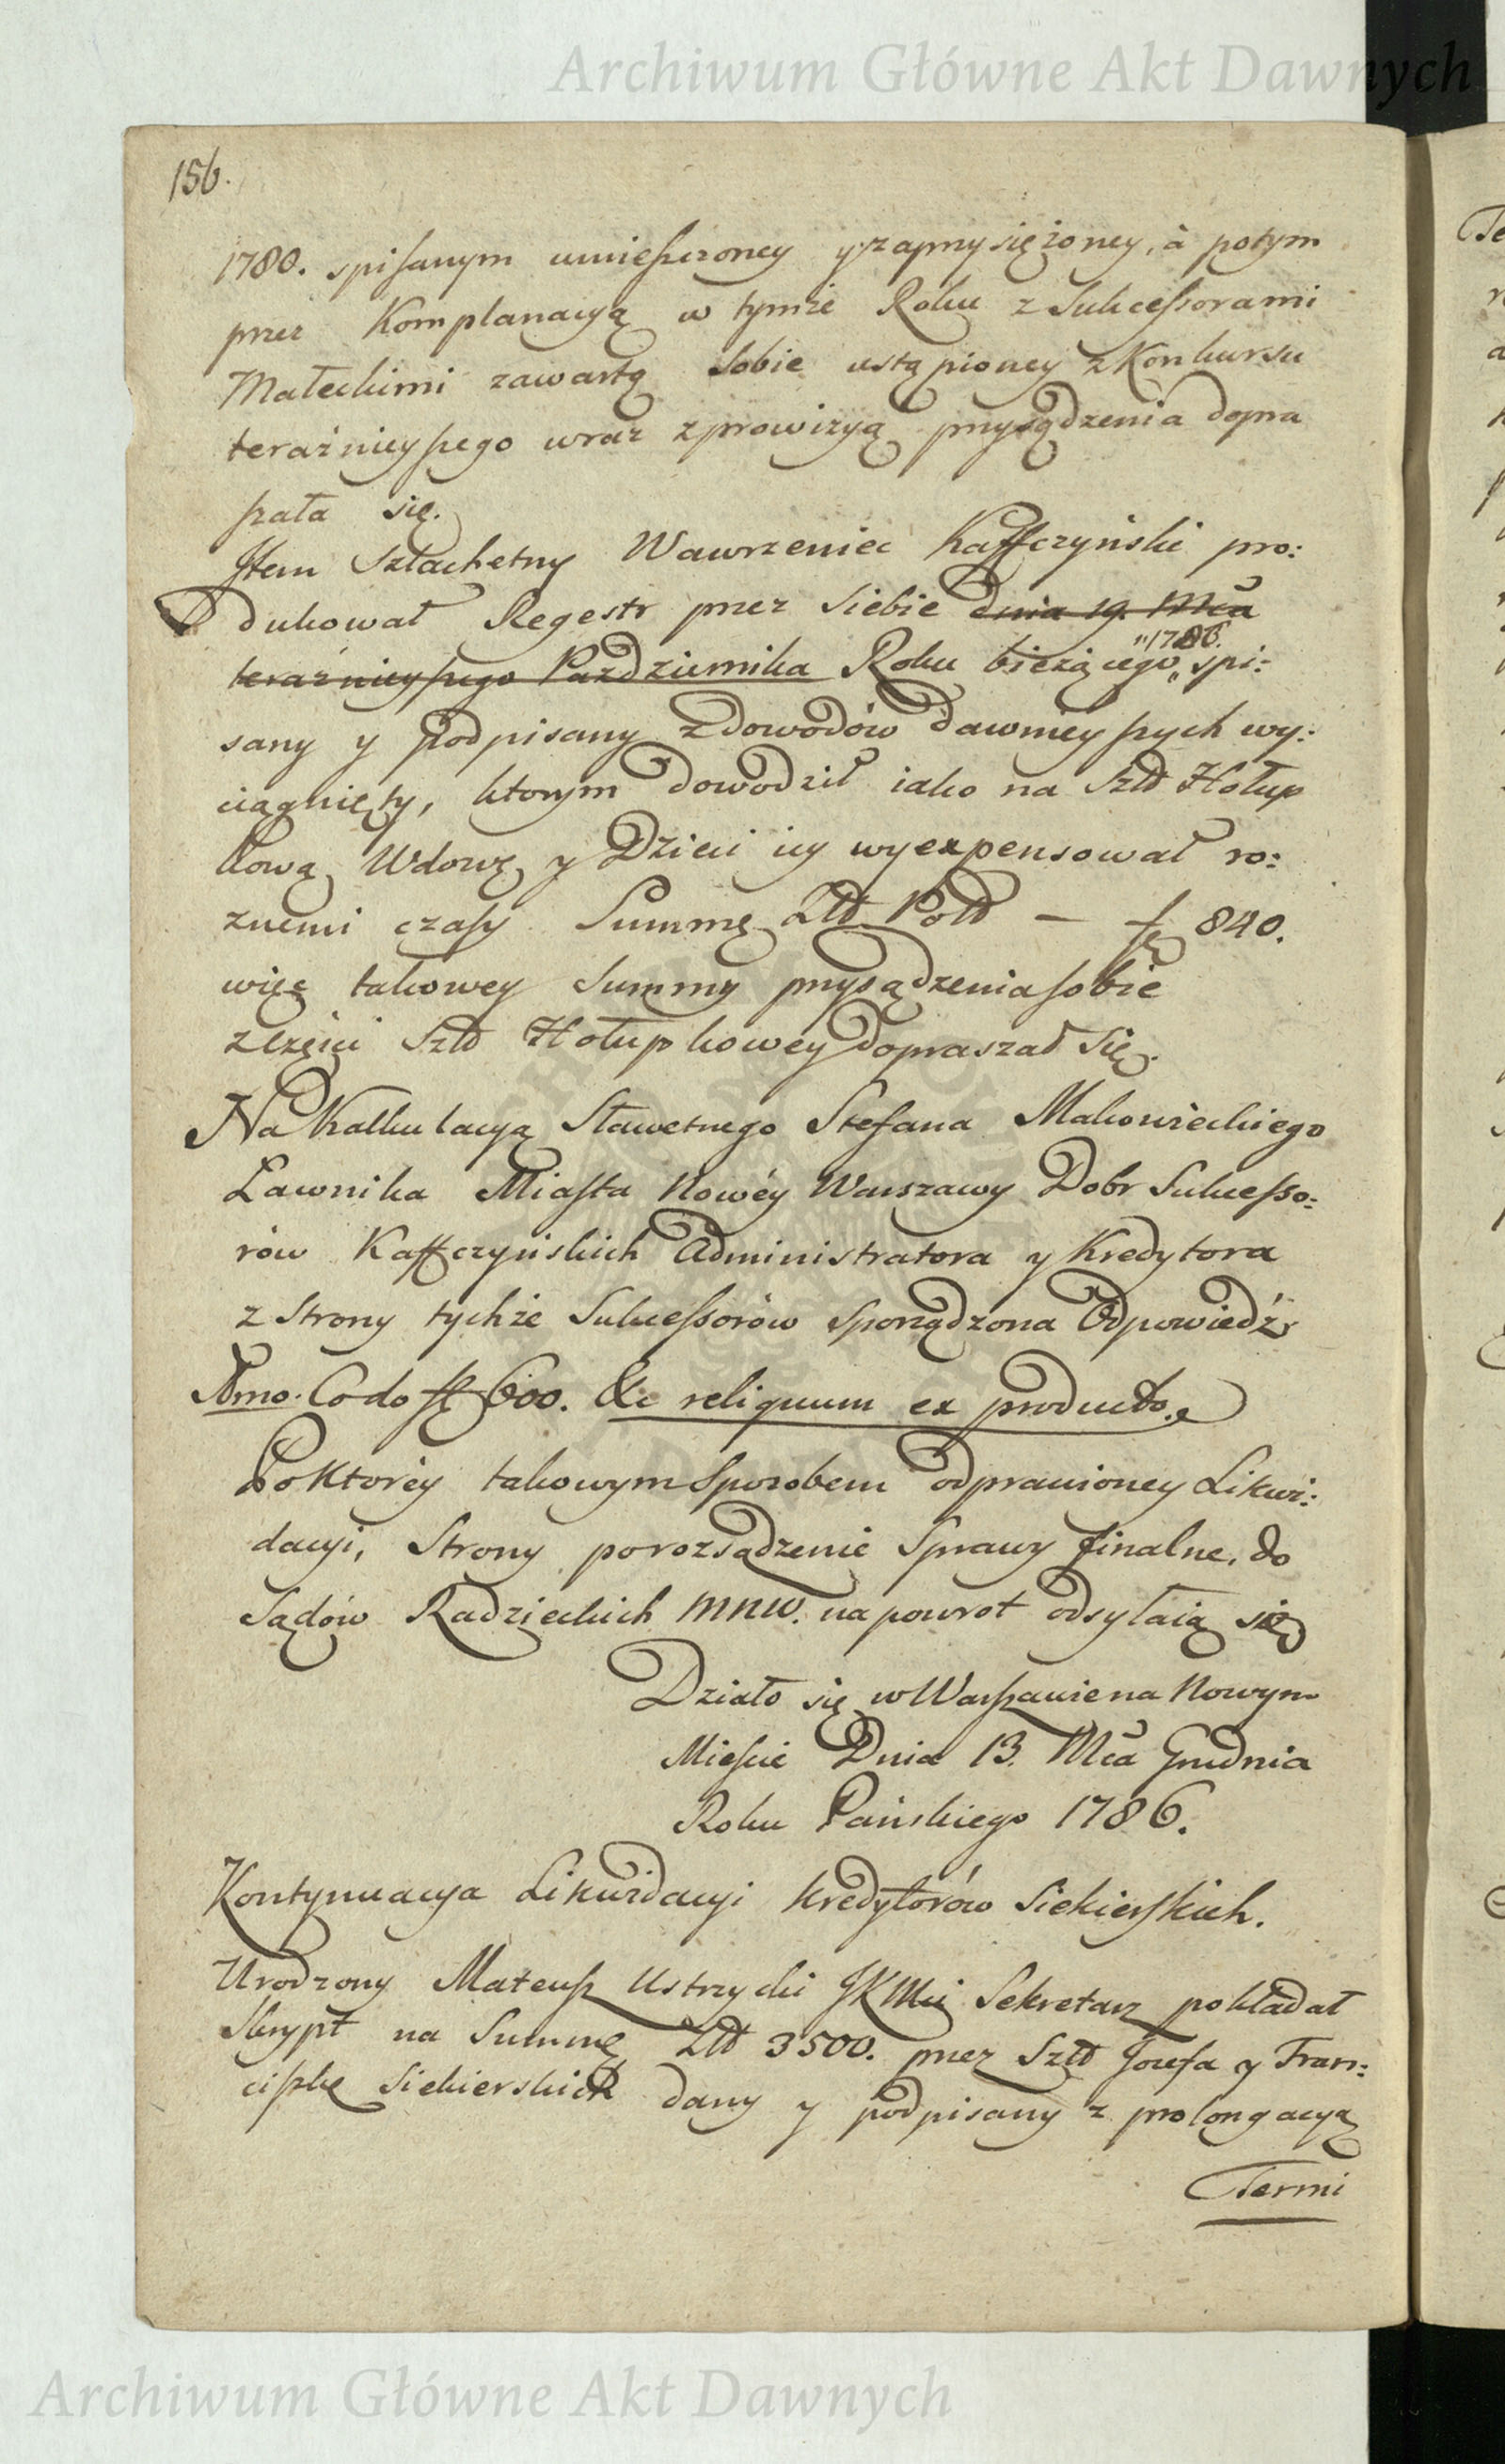 Archiwum Główne Akt Dawnych
156.
1780. spisanym umieszczoney y zaprzysiężoney, à potym
przez Komplanacyą w tymże Roku z Sukcessorami
Małeckimi zawartą sobie ustąpioney z Konkursu
teraźnieyszego wraz z prowizyą przysądzenia dopra
szała się.
Item Szlachetny Wawrzeniec Kaffczyński pro:
dukował Regestr przez siebie dnia 19. Mca
teraźnieyszego Pazdziernika Roku bieżącego „1786. spi:
sany y podpisany z dowodów dawnieyszych wy:
ciągnięty, ktorym dowodził iako na Szld Hołup
kową Wdowę y Dzieci iey wyexpensował ro:
znemi czasy Summę Zld Pold — f 840.
więc takowey Summy przysądzenia sobie
z części Szld Hołupkowey dopraszał się.
Na Kalkulacyą Sławetnego Stefana Makowieckiego
Ławnika Miasta Nowéy Warszawy Dobr Sukcesso:
rów Kaffczyńskich Administratora y Kredytora
z Strony tychże Sukcessorów sporządzona Odpowiedź
Imo. Co do fl 600. &c reliquum ex producto.
Po Ktoréy takowym Sposobem odprawioney Likwi:
dacyi, Strony po rozsądzenie Sprawy finalne, do
Sądów Radzieckich MNW. na powrot odsyłaią się
Działo się w Warszawie na Nowym
Mieście Dnia 13. Mca Grudnia
Roku Pańskiego 1786.
Kontynuacya Likwidacyi Kredytorów Siekierskich.
Urodzony Mateusz Ustrzycki JKMci Sekretarz pokładał
Skrypt na Summę Zld 3500. przez Szld Jozefa y Fran:
ciszkę Siekierskich dany y podpisany z prolongacyą
Termi
Archiwum Główne Akt Dawnych